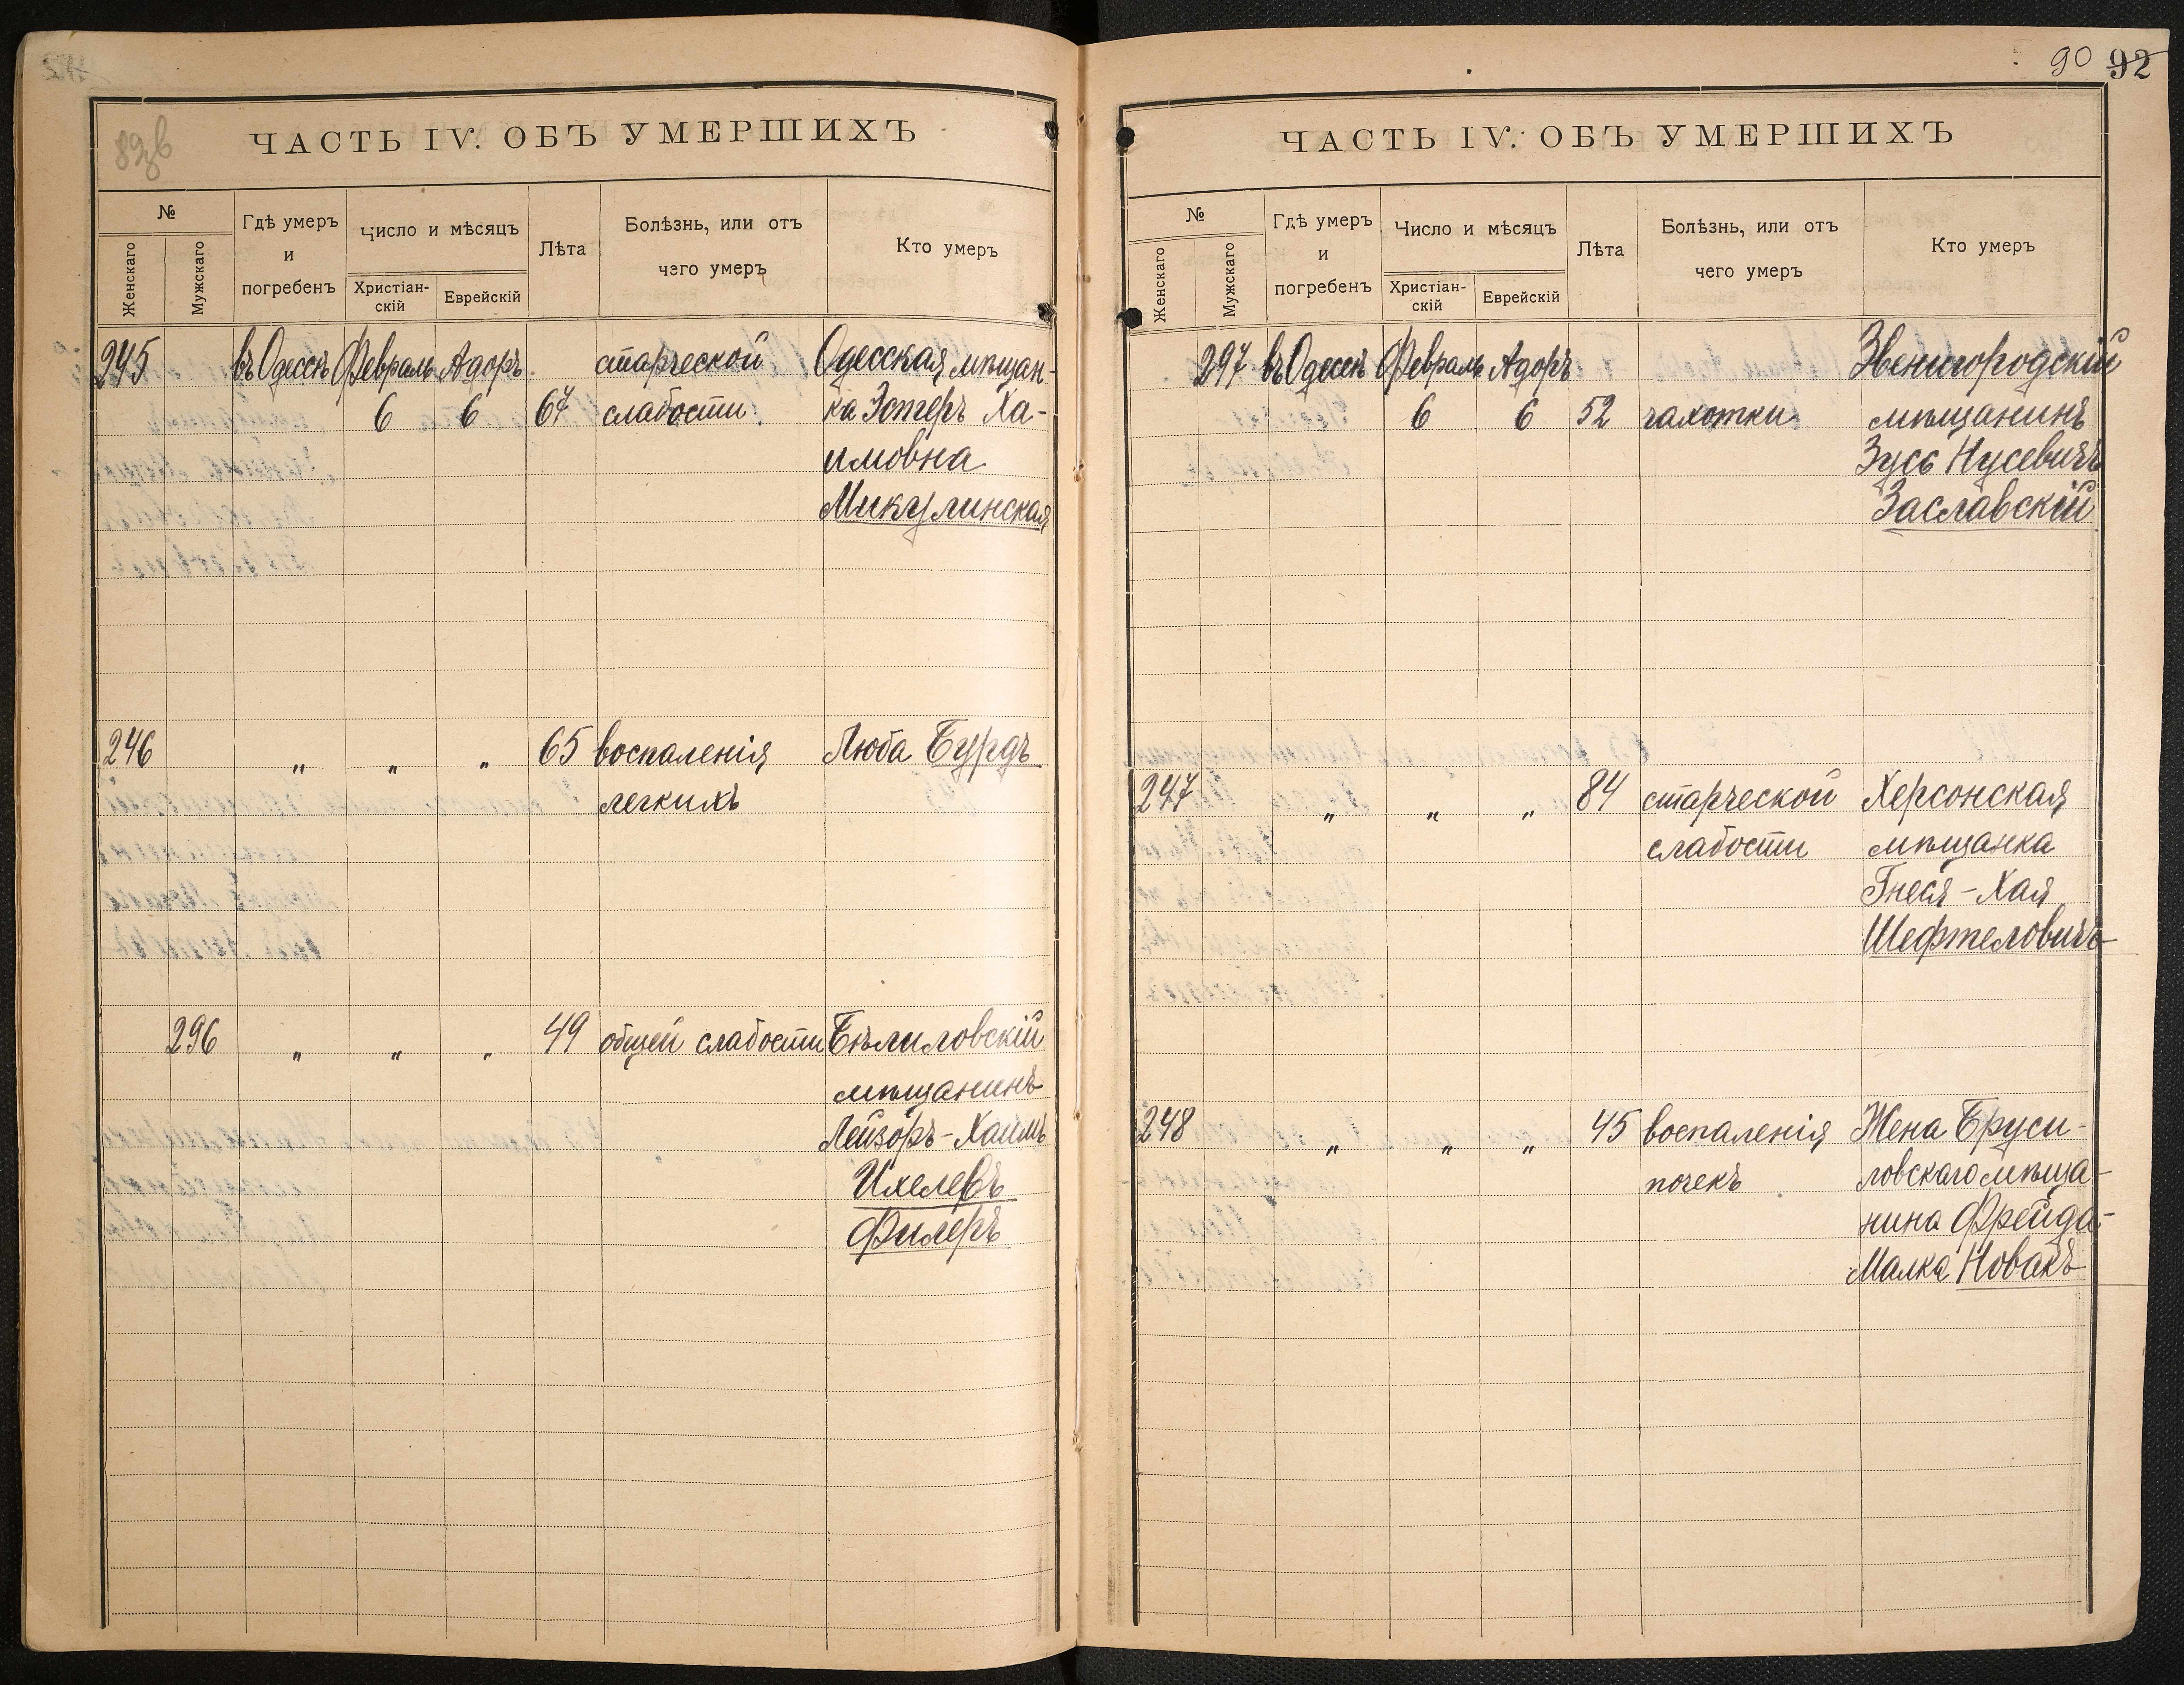 90 92
ЧАСТЬ IV. ОБЪ УМЕРШИХЪ
№
Женскаго
Мужскаго
Гдѣ умеръ
и
погребенъ
Число и мѣсяцъ
Христіан-
скій
Еврейскій
Лѣта
Болѣзнь, или отъ
чего умеръ
Кто умеръ
245 въ Одессѣ Февраль Адоръ старческой Одесская мѣщан-
6 6 67 слабости ка Эстеръ Ха-
имовна
Микулинская
246 " " " 65 воспаленія Люба Бурдъ
легкихъ
296 " " " 49 общей слабости Бѣлиловскій
мѣщанинъ
Лейзоръ-Хаимъ
Ихелевъ
Филеръ
ЧАСТЬ IV. ОБЪ УМЕРШИХЪ
№
Женскаго
Мужскаго
Гдѣ умеръ
и
погребенъ
Число и мѣсяцъ
Христіан-
скій
Еврейскій
Лѣта
Болѣзнь, или отъ
чего умеръ
Кто умеръ
297 въ Одессѣ Февраль Адоръ Звенигородскій
6 6 52 чахотки мѣщанинъ
Зусь Нусевичъ
Заславскій
247 " " " 84 старческой Херсонская
слабости мѣщанка
Гнеся-Хая
Шефтеловичъ
248 " " " 45 воспаленія Жена Бруси-
почекъ ловскаго мѣща-
нина Фрейда-
Малка Новакъ